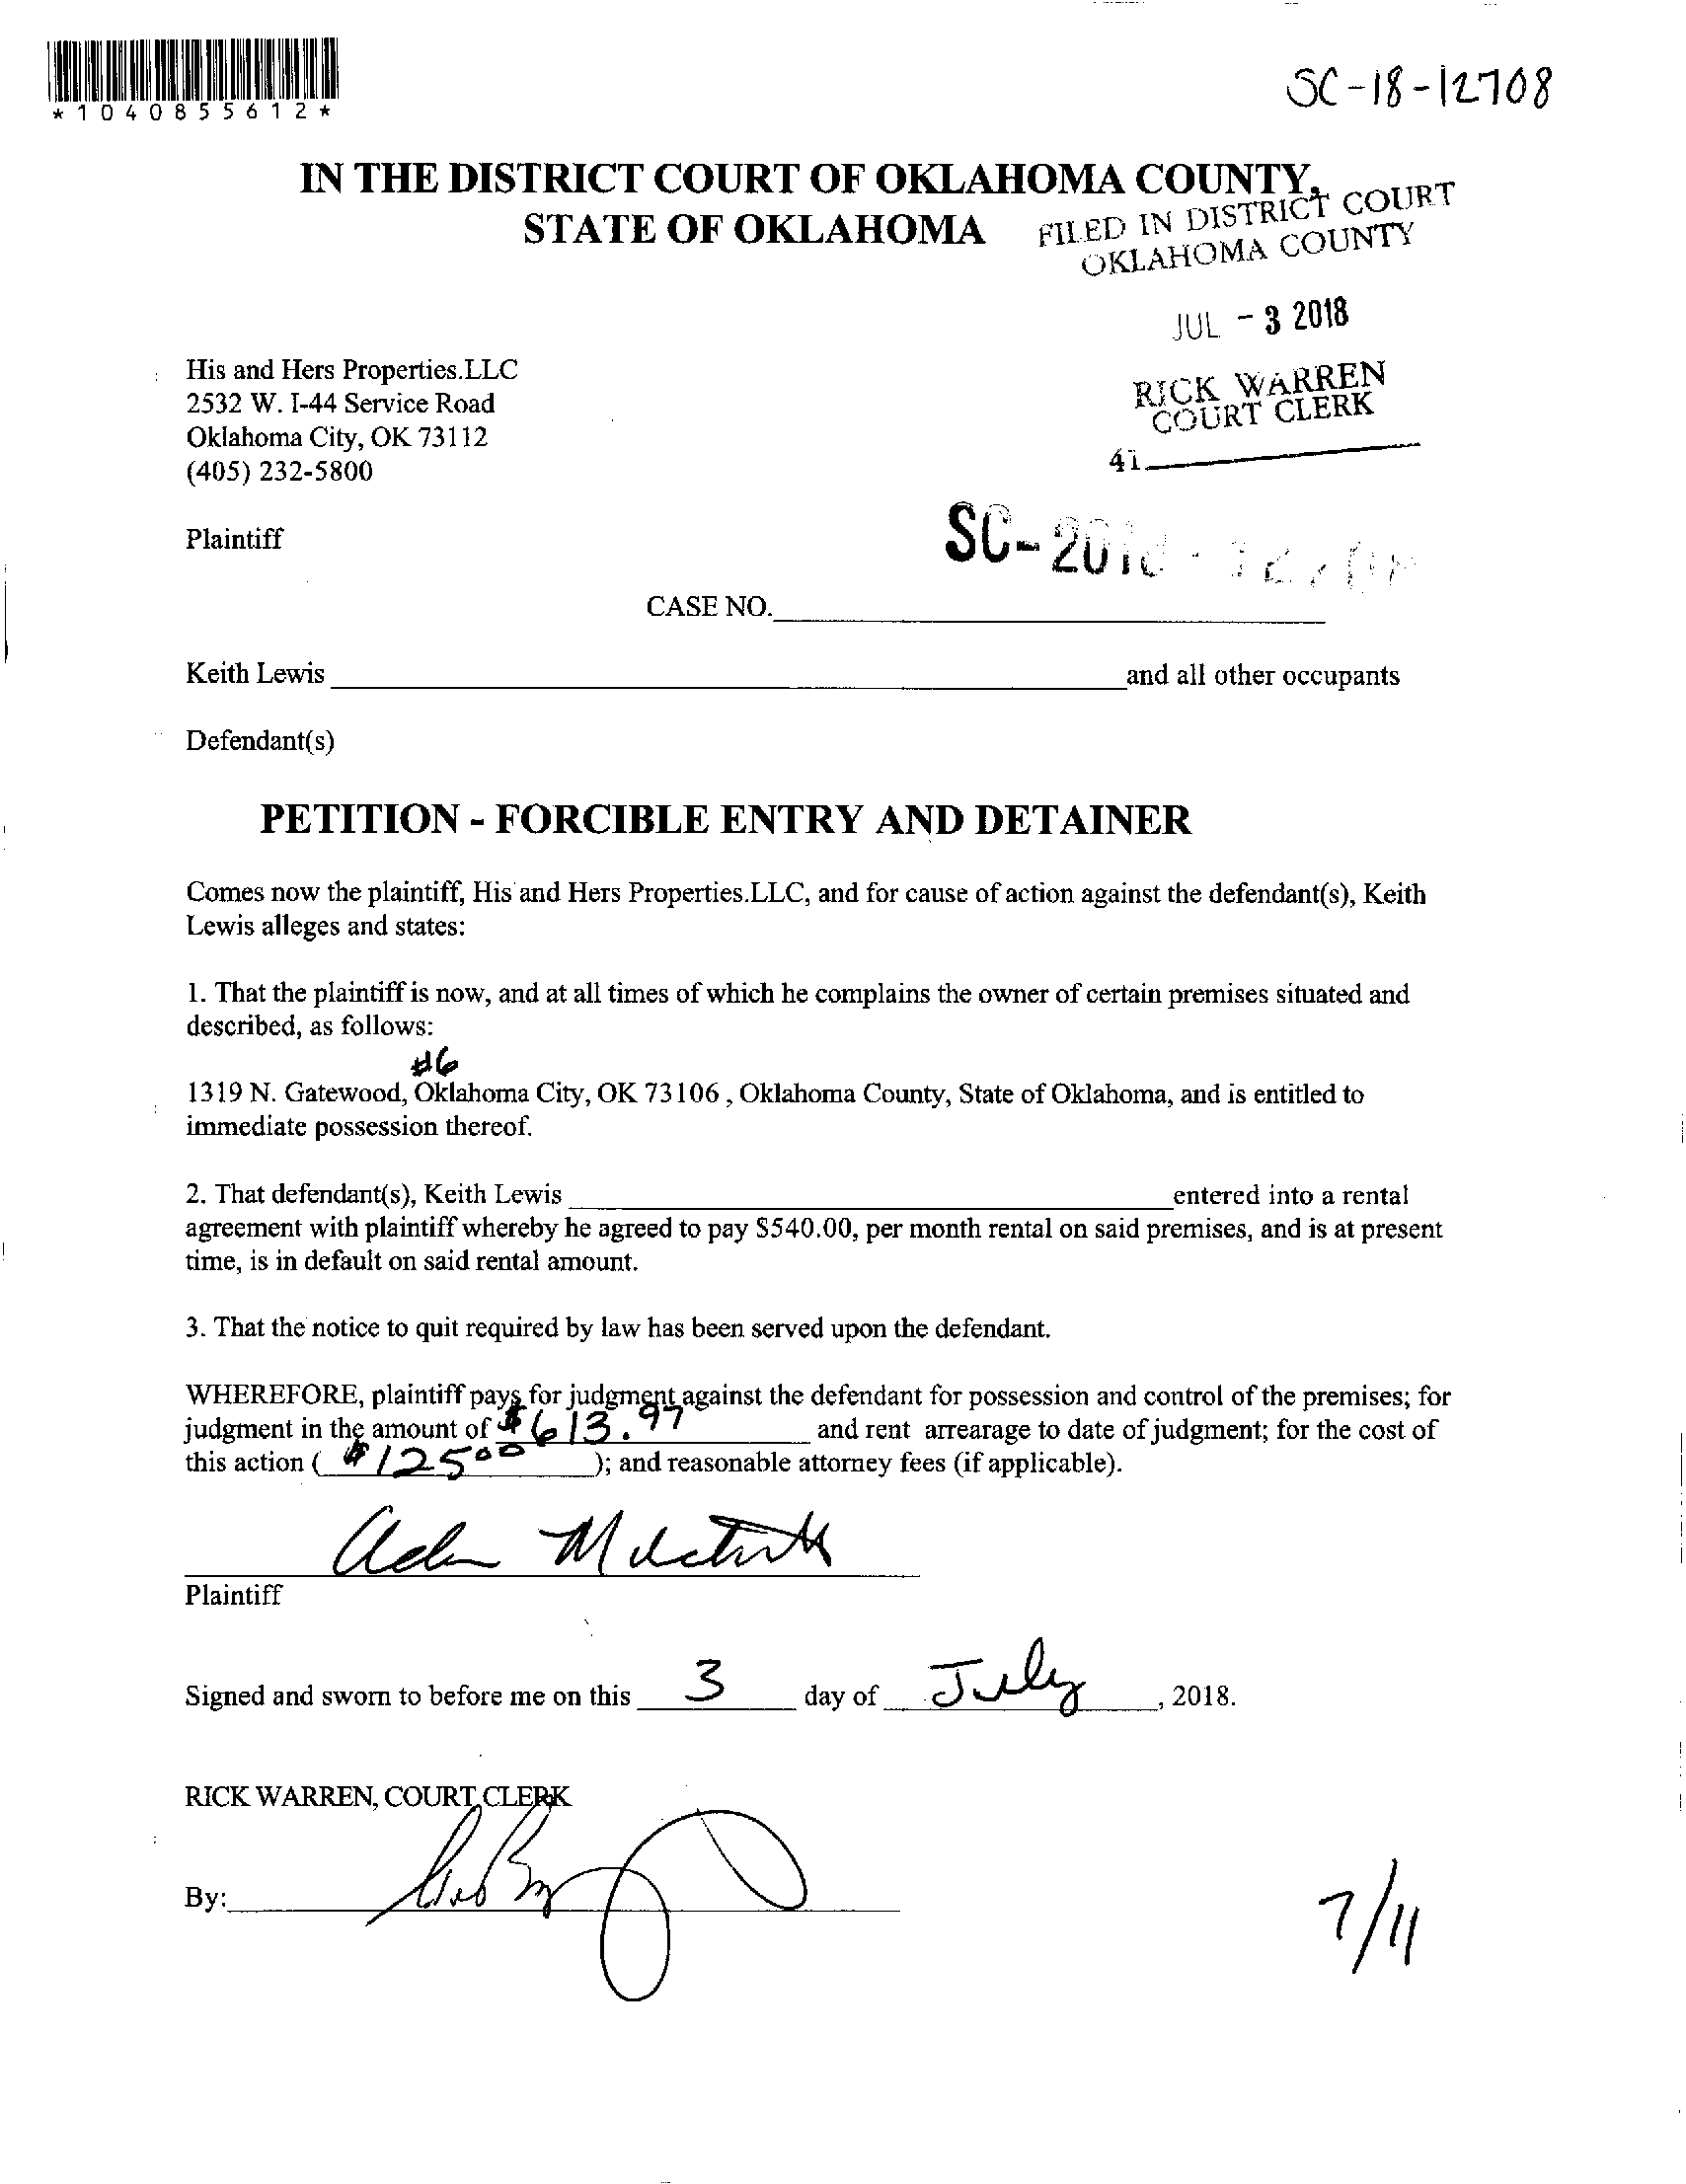 *1040855612*
SC-18-12708
IN THE DISTRICT COURT OF OKLAHOMA COUNTY,
STATE OF OKLAHOMA
FILED IN DISTRICT COURT
OKLAHOMA COUNTY
JUL - 3 2018
RICK WARREN
COURT CLERK
41
His and Hers Properties.LLC
2532 W. I-44 Service Road
Oklahoma City, OK 73112
(405) 232-5800
Plaintiff
SC-2018-12708
CASE NO.
Keith Lewis and all other occupants
Defendant(s)
PETITION - FORCIBLE ENTRY AND DETAINER
Comes now the plaintiff, His and Hers Properties.LLC, and for cause of action against the defendant(s), Keith
Lewis alleges and states:
1. That the plaintiff is now, and at all times of which he complains the owner of certain premises situated and
described, as follows:
#6
1319 N. Gatewood, Oklahoma City, OK 73106 , Oklahoma County, State of Oklahoma, and is entitled to
immediate possession thereof.
2. That defendant(s), Keith Lewis entered into a rental
agreement with plaintiff whereby he agreed to pay $540.00, per month rental on said premises, and is at present
time, is in default on said rental amount.
3. That the notice to quit required by law has been served upon the defendant.
WHEREFORE, plaintiff pays for judgment against the defendant for possession and control of the premises; for
judgment in the amount of $613.97 and rent arrearage to date of judgment; for the cost of
this action ( $12500 ); and reasonable attorney fees (if applicable).
Plaintiff
Signed and sworn to before me on this 3 day of July, 2018.
RICK WARREN, COURT CLERK
By:
7/11